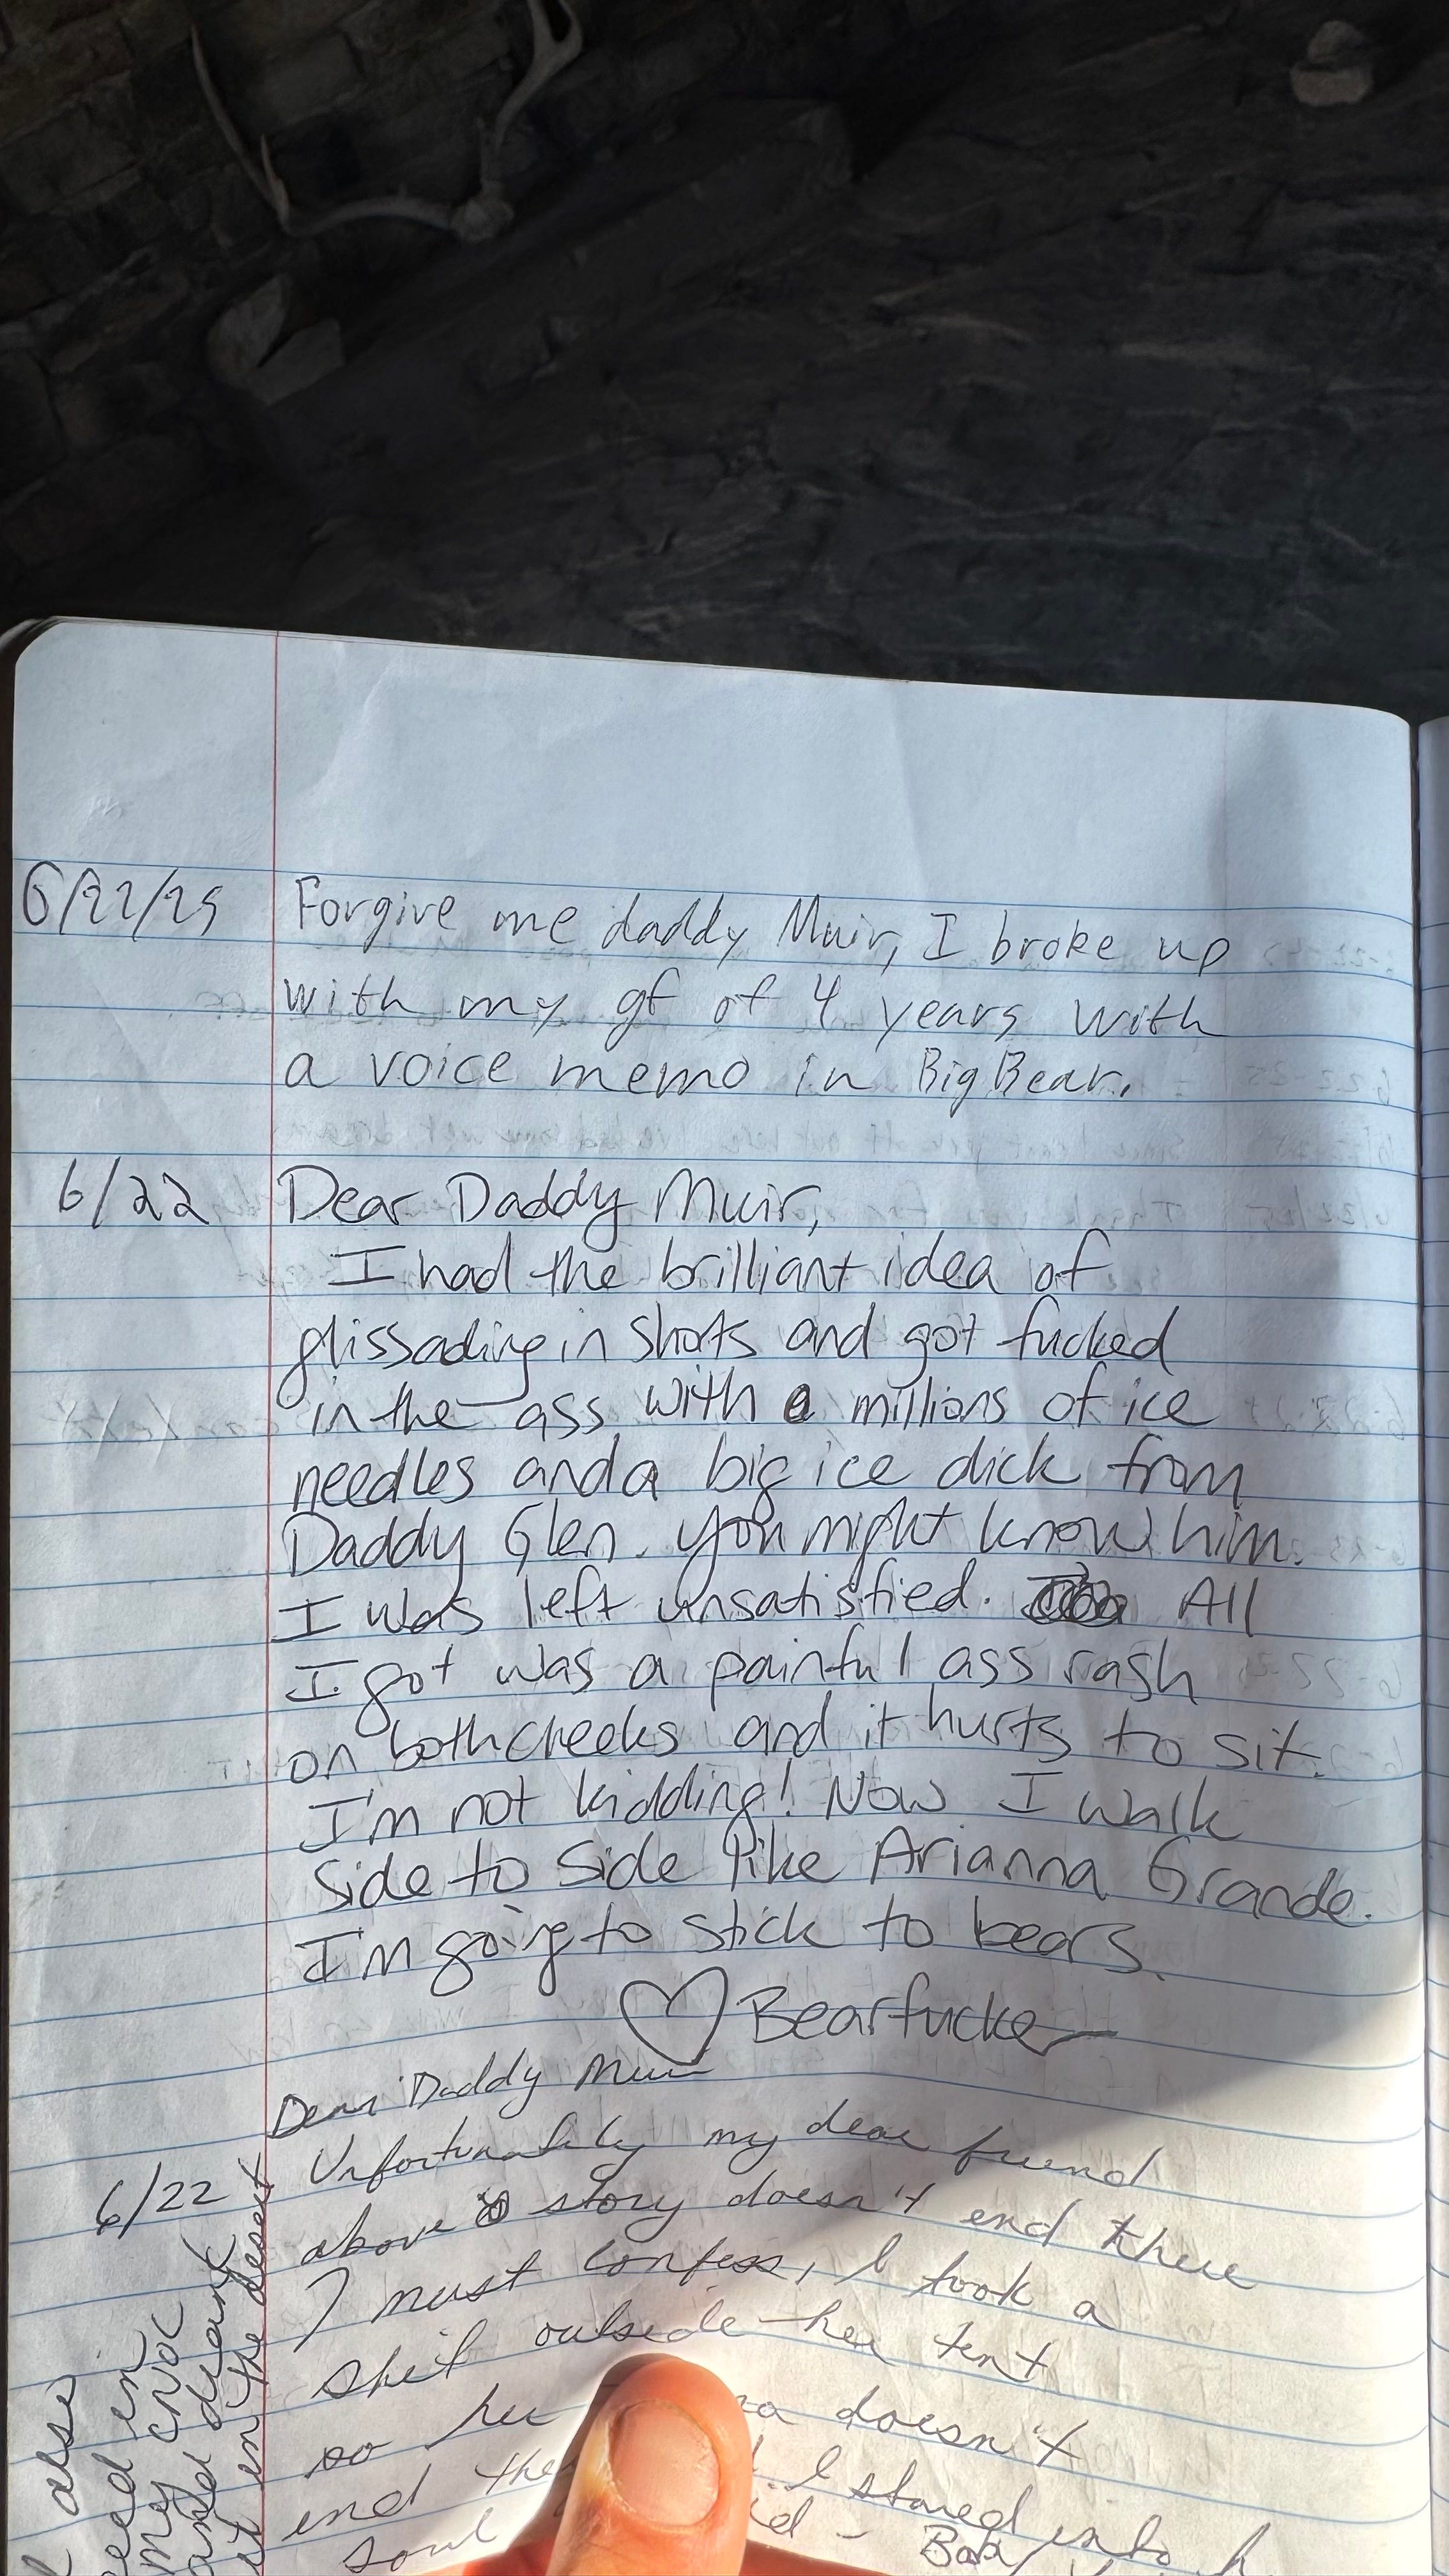 6/22/25 Forgive me daddy Muir, I broke up
with my gf of 4 years with
a voice memo in Big Bear.
6/22 Dear Daddy Muir,
I had the brilliant idea of
glissading in shorts and got fucked
in the ass with a millions of ice
needles and a big ice dick from
Daddy Glen. You might know him.
I was left unsatisfied. All
I got was a painful ass rash
on both cheeks and it hurts to sit.
I'm not kidding! Now I walk
side to side like Arianna Grande.
I'm going to stick to bears.
♡ Bearfucker
Dear Daddy Muir
6/22 Unfortunately my dear friend
above story doesn't end there
I must confess, I took a
shit outside her tent
so her doesn't
end the I stared into h
soul
also
in
my cnoc
and drank
it in the desert